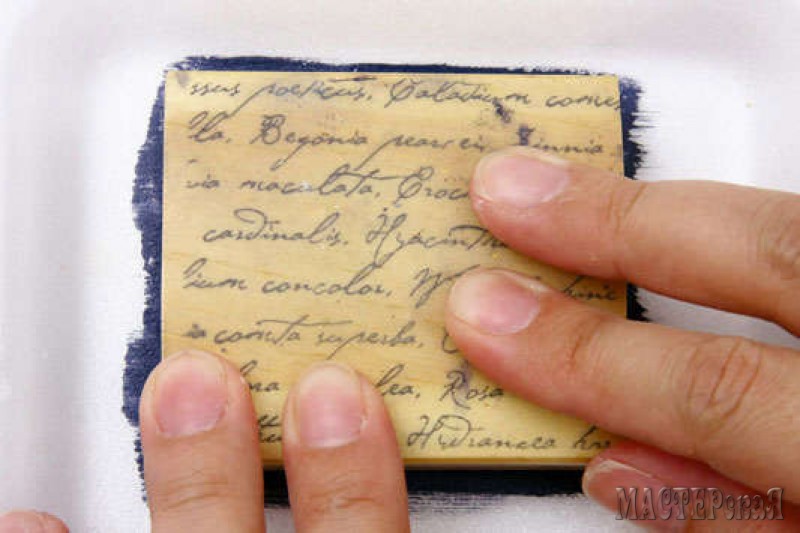 ssus poeticus, Caladium come
lla, Begonia pearcei, Zinnia
via maculata, Croc
cardinalis, Hyacinth
lium concolor,
ia comta superba,
lea, Rosa
Hydrangea hor
МАСТЕРскаЯ